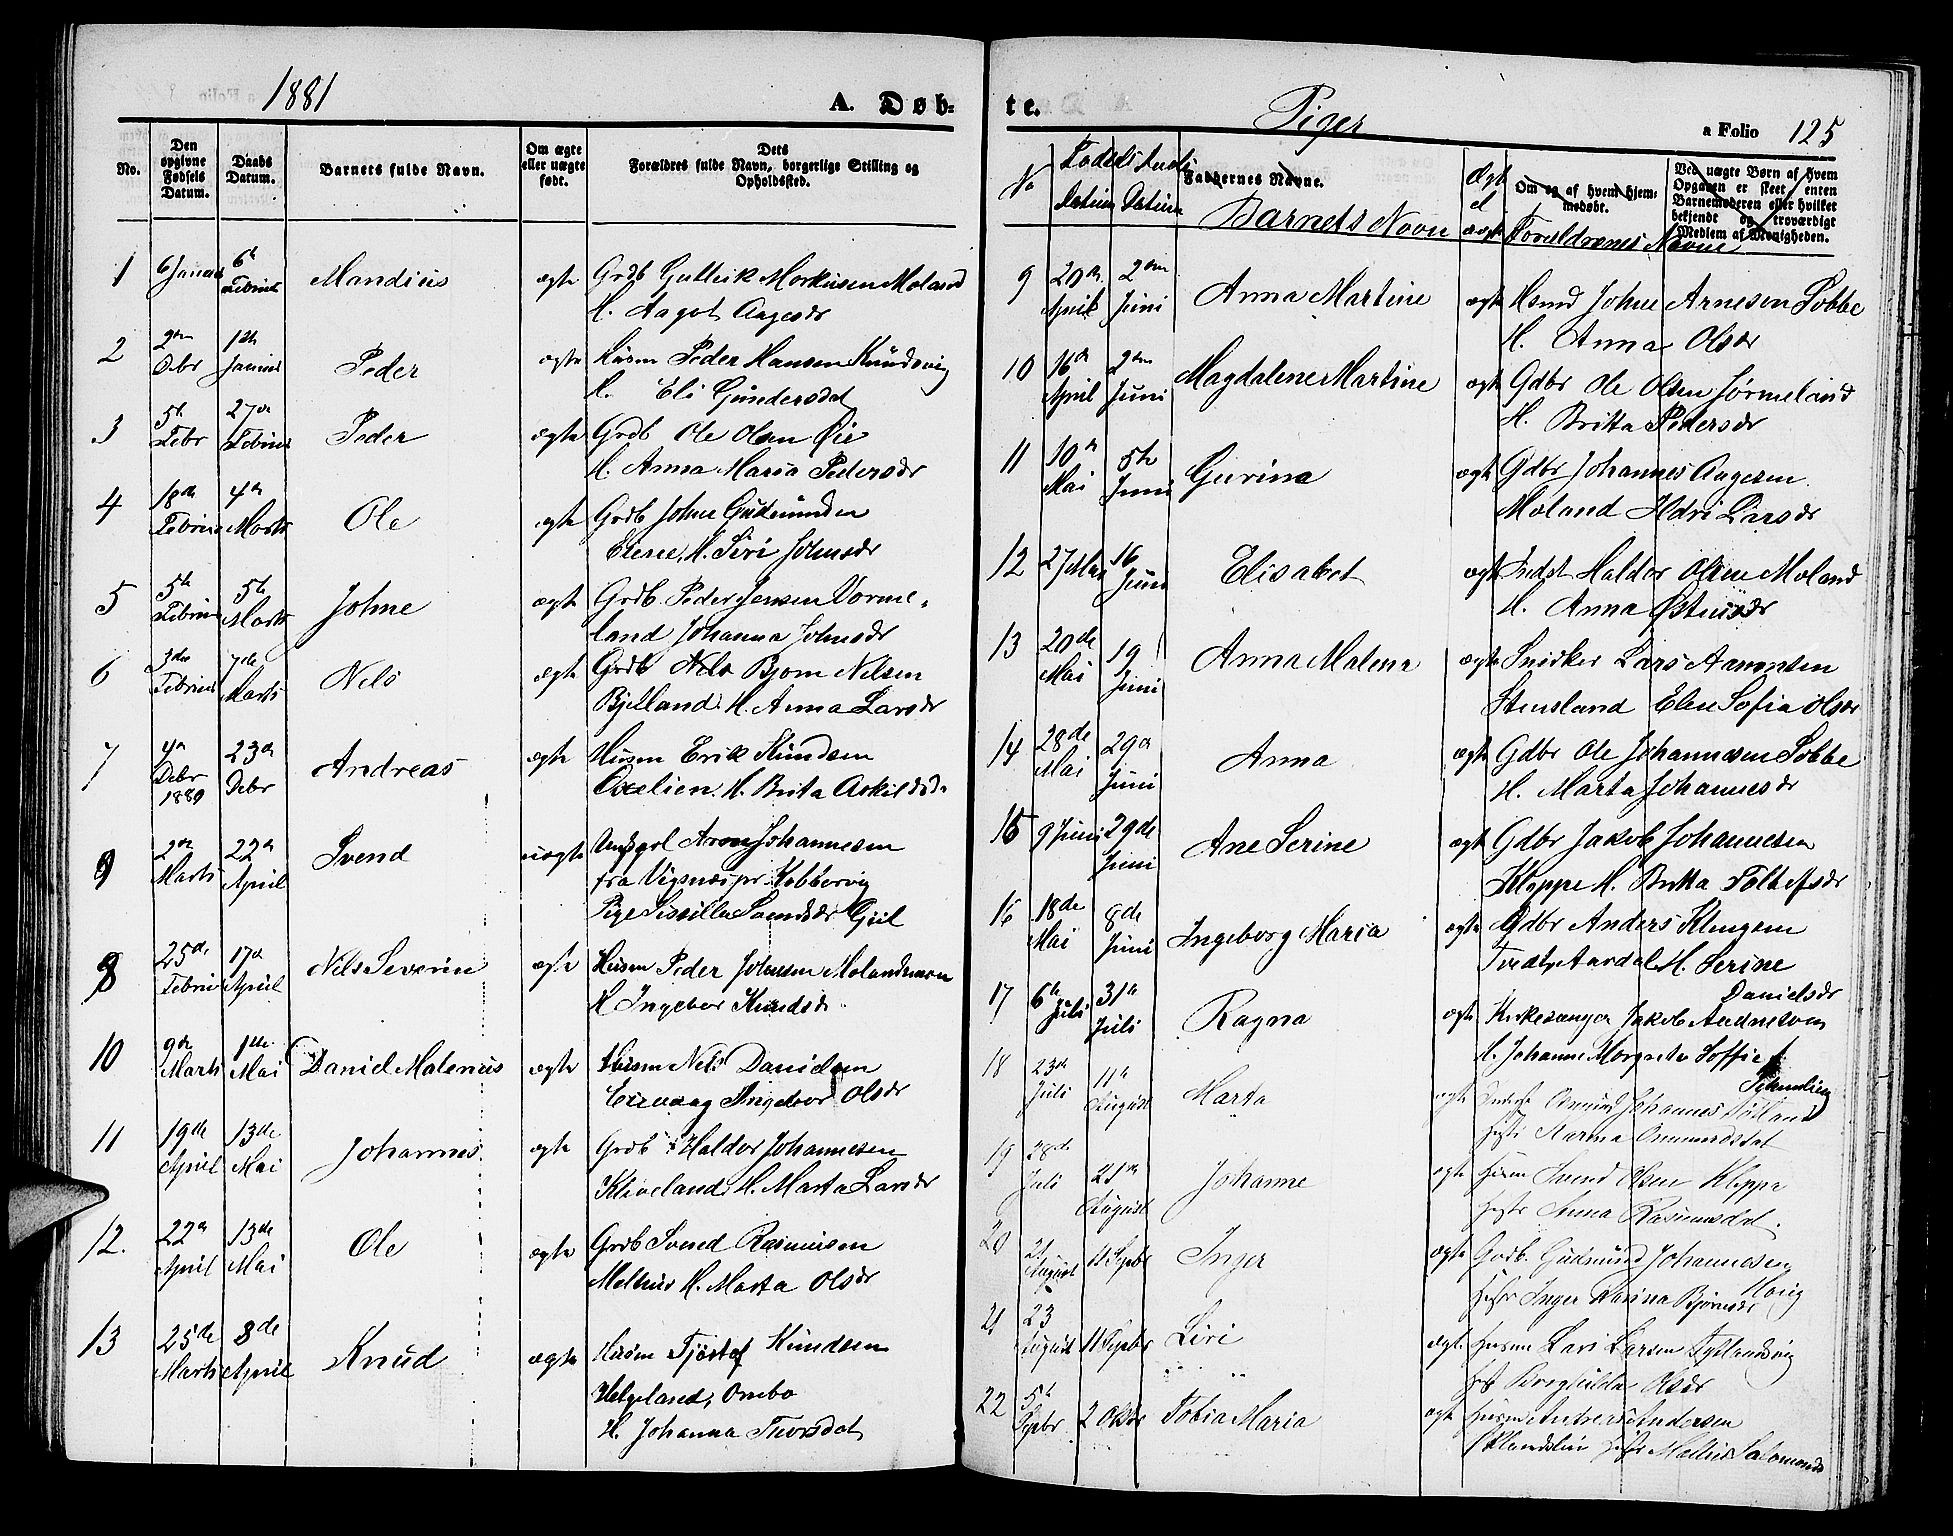 1881
A. Døb-
No.
Den opgivne Fødsels Datum.
Daabs Datum.
Barnets fulde Navn.
Om ægte eller uægte født.
Dets Forældres fulde Navn, borgerlige Stilling og Opholdsted.
1 6 Januar 6te Februar Mandius ægte Grdb Guttvik Markusen Moland
H. Aagot Aagesdr
2 2den Dbr 1ste Januar Peder ægte Husm Peder Hansen Knudsvig
H. Eli Gundersdat
3 5te Febr 27de Februar Peder ægte Grdb Ole Olsen Øie
H. Anna Maria Pedersdr
4 18de Februar 4de Marts Ole ægte Grdb Johne Gudmundsen
H. Siri Johnsdr
5 5te Februar 5te Marts Johne ægte Grdb. Peder Jensen Vorme-
land Johanna Johnsdr
6 3die Februar 7de Marts Nels ægte Grdb Nels Bjorn Nelsen
Bjelland. H. Anna Larsdr
7 4de Debr 1880 23de Debr Andreas ægte Husm Erik Knudsen
H. Brita Askilsd
9 2den Marts 22de April Svend uægte Ungkrl Aron Johannesen
fra Vigsnæs pr. Kobbervig
Pige Sissilla
8 25de Februar 17de April Nels Severin ægte Husm Peder Johnsen
H Ingebor Knudsdr
10 9de Marts 1ste Mai Daniel Matenius ægte Husm Nels Danielsen
Ingebor Olsdr
11 19de April 13de Mai Johannes ægte Grdb Haldor Johannesen
Kleveland. H. Marta Larsdr
12. 22de April 13de Mai Ole ægte Grdb Svend Rasmusen
H. Marta Olsdr
13 25de Marts 8de April Knud ægte Husm Tjøstof Knudsen
Helgeland, Ombo
H. Johanna Thorsdat
te.
Piger
a Folio 125
No
Fødsels Datum
Daabs Datum
Faddernes Navne.
Barnets Navn
Ægt el uægt
Om og af hvem hjemmedøbt.
Forældrenes Navne
Ved uægte Børn af hvem Opgaven er skeet enten Barnemoderen eller hvilket bekjendt og troværdigt Medlem af Menigheden.
9 20de April 2den Juni Anna Martine ægte Husmd Johne Arnesen Tobbe
H. Anna Olsdr
10 16de April 2den Juni Magdalene Martine ægte Gdbr Ole Olsen Jørmeland
H. Britta Pedersdr
11 10de Mai 5te Juni Gurina ægte Gdbr Johannes Aagesen
Moland Ildri Larsdr
12 27 Mai 16 Juni Elisabet ægte Indst Haldor Olsen Moland
H. Anna Østensdr
13 20de Mai 19 Juni Anna Malena ægte Snirker Lars Aamonsen
Stensland Elen Sofia Olsdr
14 28de Mai 29de Juni Anna ægte Gdbr Ole Johannesen Tobbe
H. Marta Johannesdr
15 9 Juni 29de Juni Ane Serine ægte Gdbr Jakob Johannesen
Kleppe H. Britta Tollefsdr
16 18de Mai 8de Juni Ingeborg Maria ægte Gdbr Anders Klungsen
Aardal H. Serine
Danielsdr
17 6te Juli 31te Juli Ragna ægte Kirkesanger Jakob Audnesøn
H. Johanne Margreta Soffie f.
18 23de Juli 11te August Marta ægte Indst Omund Johannes
Hustr Karina Omundsdat
19 28de Juli 21de August Johanne ægte Husm Svend Olsen Kleppe
Hustr Anna Rasmusdat.
20 21 August 11 Sepbr Inger ægte Grdb. Gudmund Johannesen
Haug
Hustr Inger Karina Bjørnsdr
21 23 August 11 Sepbr Siri ægte Husm Lars Larsen
Borghilda Olsdr
22 5te Sepbr 2 Oktbr Tobia Maria ægte Husm Andreas Andersen
Hustr Malene Salomonsd